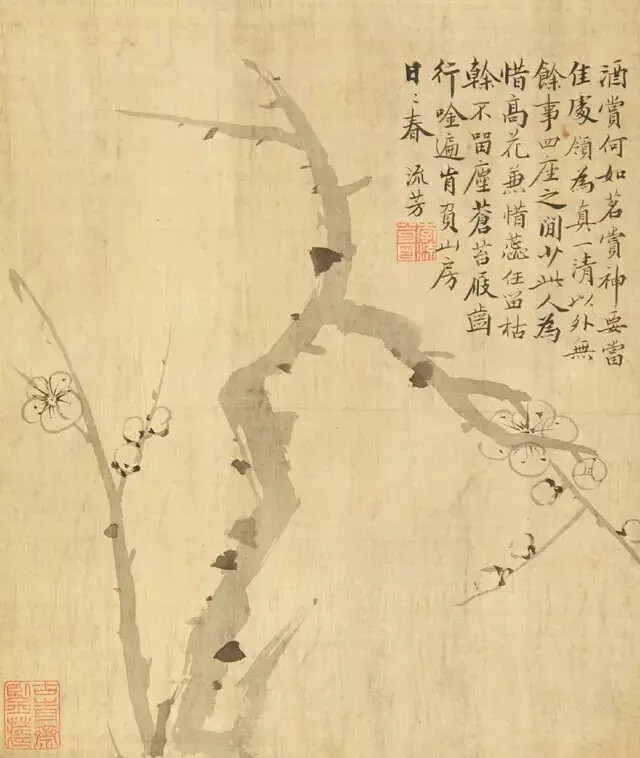 酒賞何如茗賞神要當
佳處領為真一清以外無
餘事四座之間少此人為
惜高花兼惜蕊任留枯
榦不留塵蒼苔屐齒
行唫遍肯負山房
日〻春 流芳